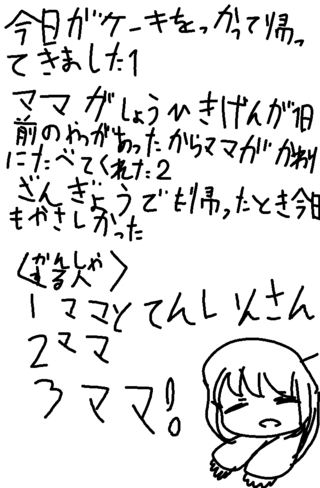 今日がケーキをっかって帰っ
てきました1
ママがしょうひきげんが1日
前のやつがあったからママがかわり
にたべてくれた2
ざんぎょうでも帰ったとき今日
もやさしかった
〈かんしゃする人〉
1ママとてんいんさん
2ママ
3ママ!